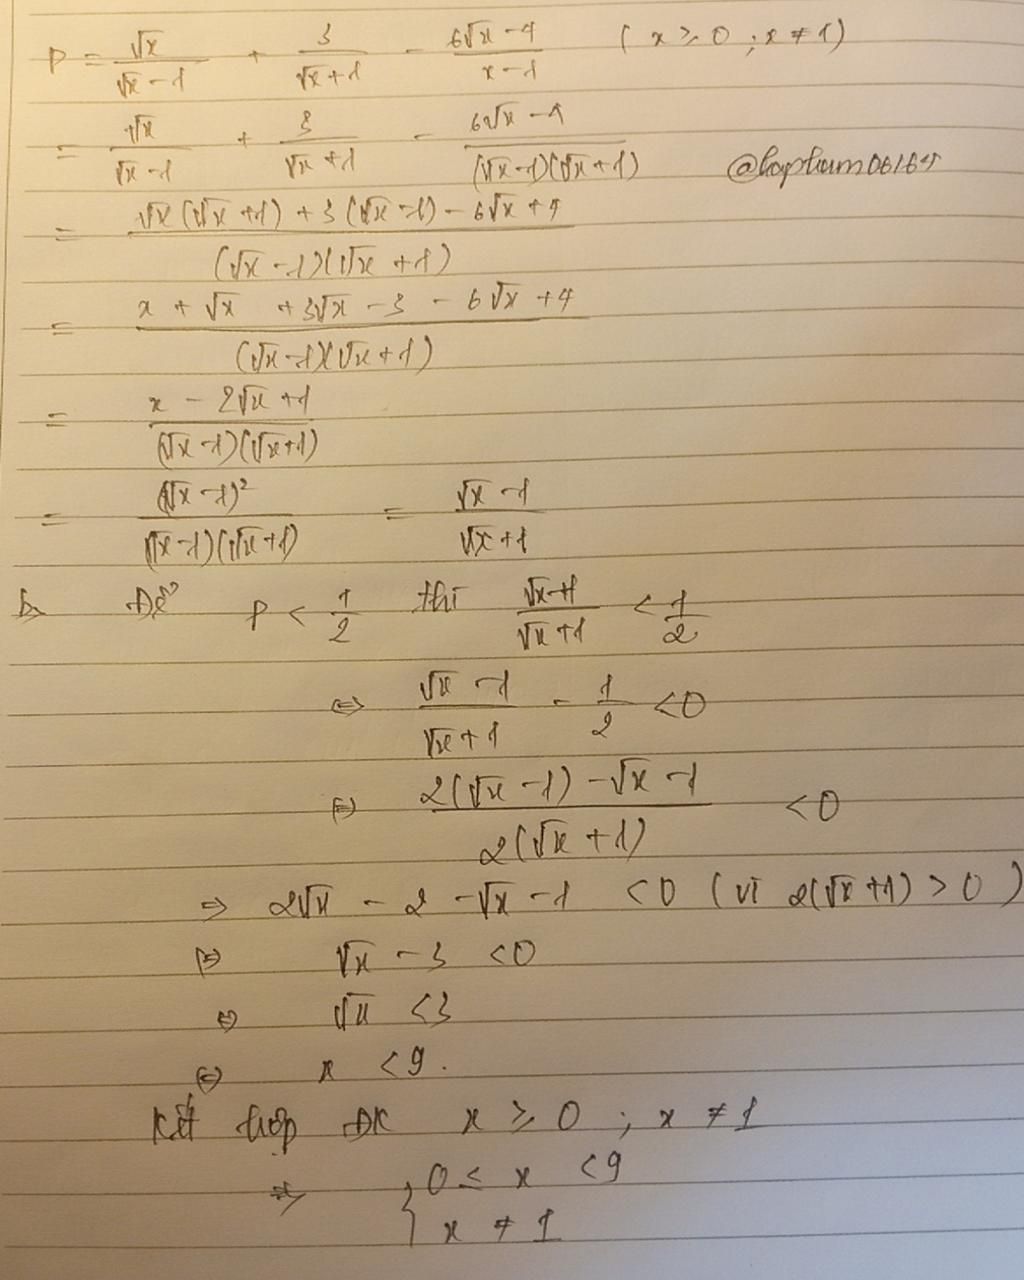 P = √x/(√x - 1) + 3/(√x + 1) - (6√x - 4)/(x - 1) ( x ≥ 0 ; x ≠ 1)
= √x/(√x - 1) + 3/(√x + 1) - (6√x - 4)/((√x - 1)(√x + 1))
= (√x(√x + 1) + 3(√x - 1) - 6√x + 4)/((√x - 1)(√x + 1))
= (x + √x + 3√x - 3 - 6√x + 4)/((√x - 1)(√x + 1))
= (x - 2√x + 1)/((√x - 1)(√x + 1))
= (√x - 1)²/((√x - 1)(√x + 1)) = (√x - 1)/(√x + 1)
b, Để P < 1/2 thì (√x - 1)/(√x + 1) < 1/2
⇔ (√x - 1)/(√x + 1) - 1/2 < 0
⇔ (2(√x - 1) - √x - 1)/(2(√x + 1)) < 0
⇒ 2√x - 2 - √x - 1 < 0 (vì 2(√x + 1) > 0 )
⇔ √x - 3 < 0
⇔ √x < 3
⇔ x < 9.
Kết hợp ĐK x ≥ 0 ; x ≠ 1
⇒ { 0 ≤ x < 9
x ≠ 1